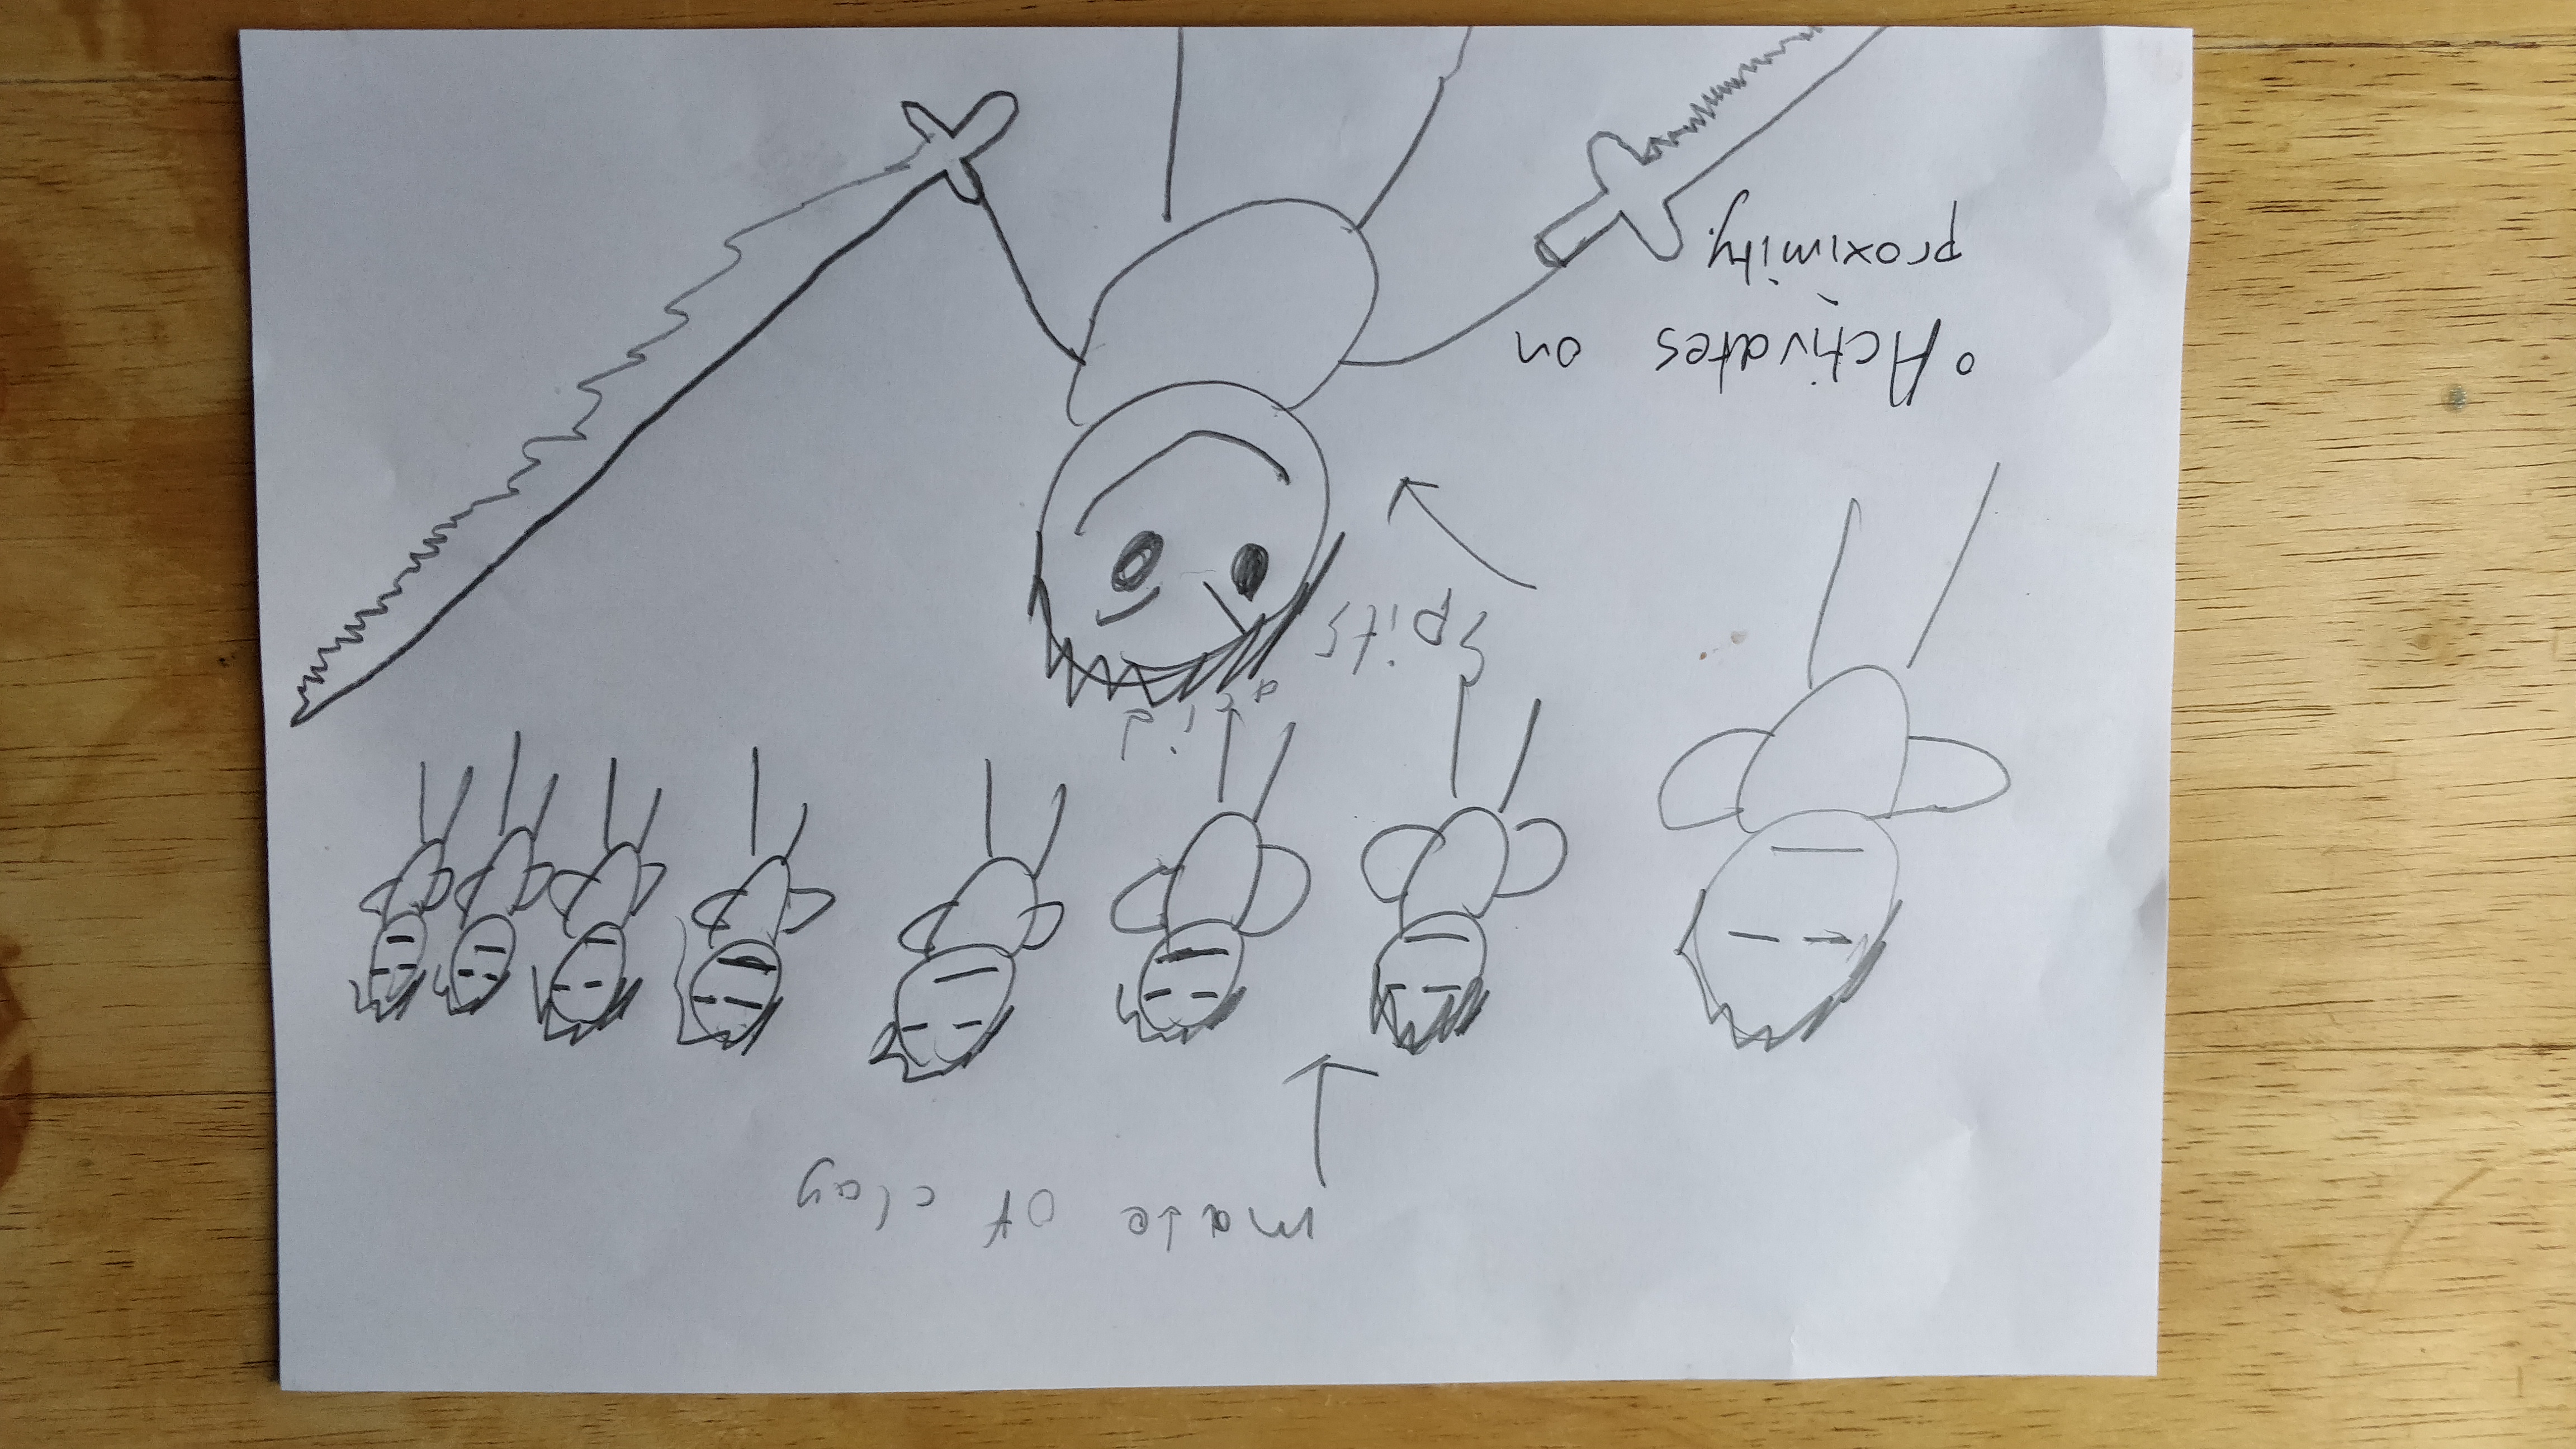 made of clay
spits
acid
• Activates on
proximity.